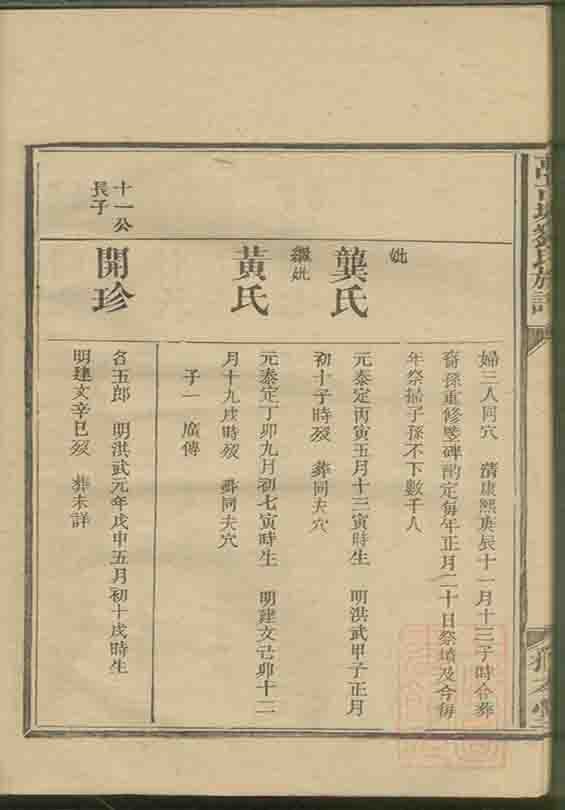 劉氏族譜
婦三人同穴　清康熙庚辰十一月十三子時合葬
裔孫重修竪碑酌定每年正月二十日祭墳及今每
年祭掃子孫不下數千人
妣
龔氏
元泰定丙寅五月十三寅時生　明洪武甲子正月
初十子時歿　葬同夫穴
繼妣
黃氏
元泰定丁卯九月初七寅時生　明建文己卯十二
月十九戌時歿　葬同夫穴
子一　廣傳
十一公
長子
開珍
名五郎　明洪武元年戊申五月初十戌時生
明建文辛巳歿　葬未詳